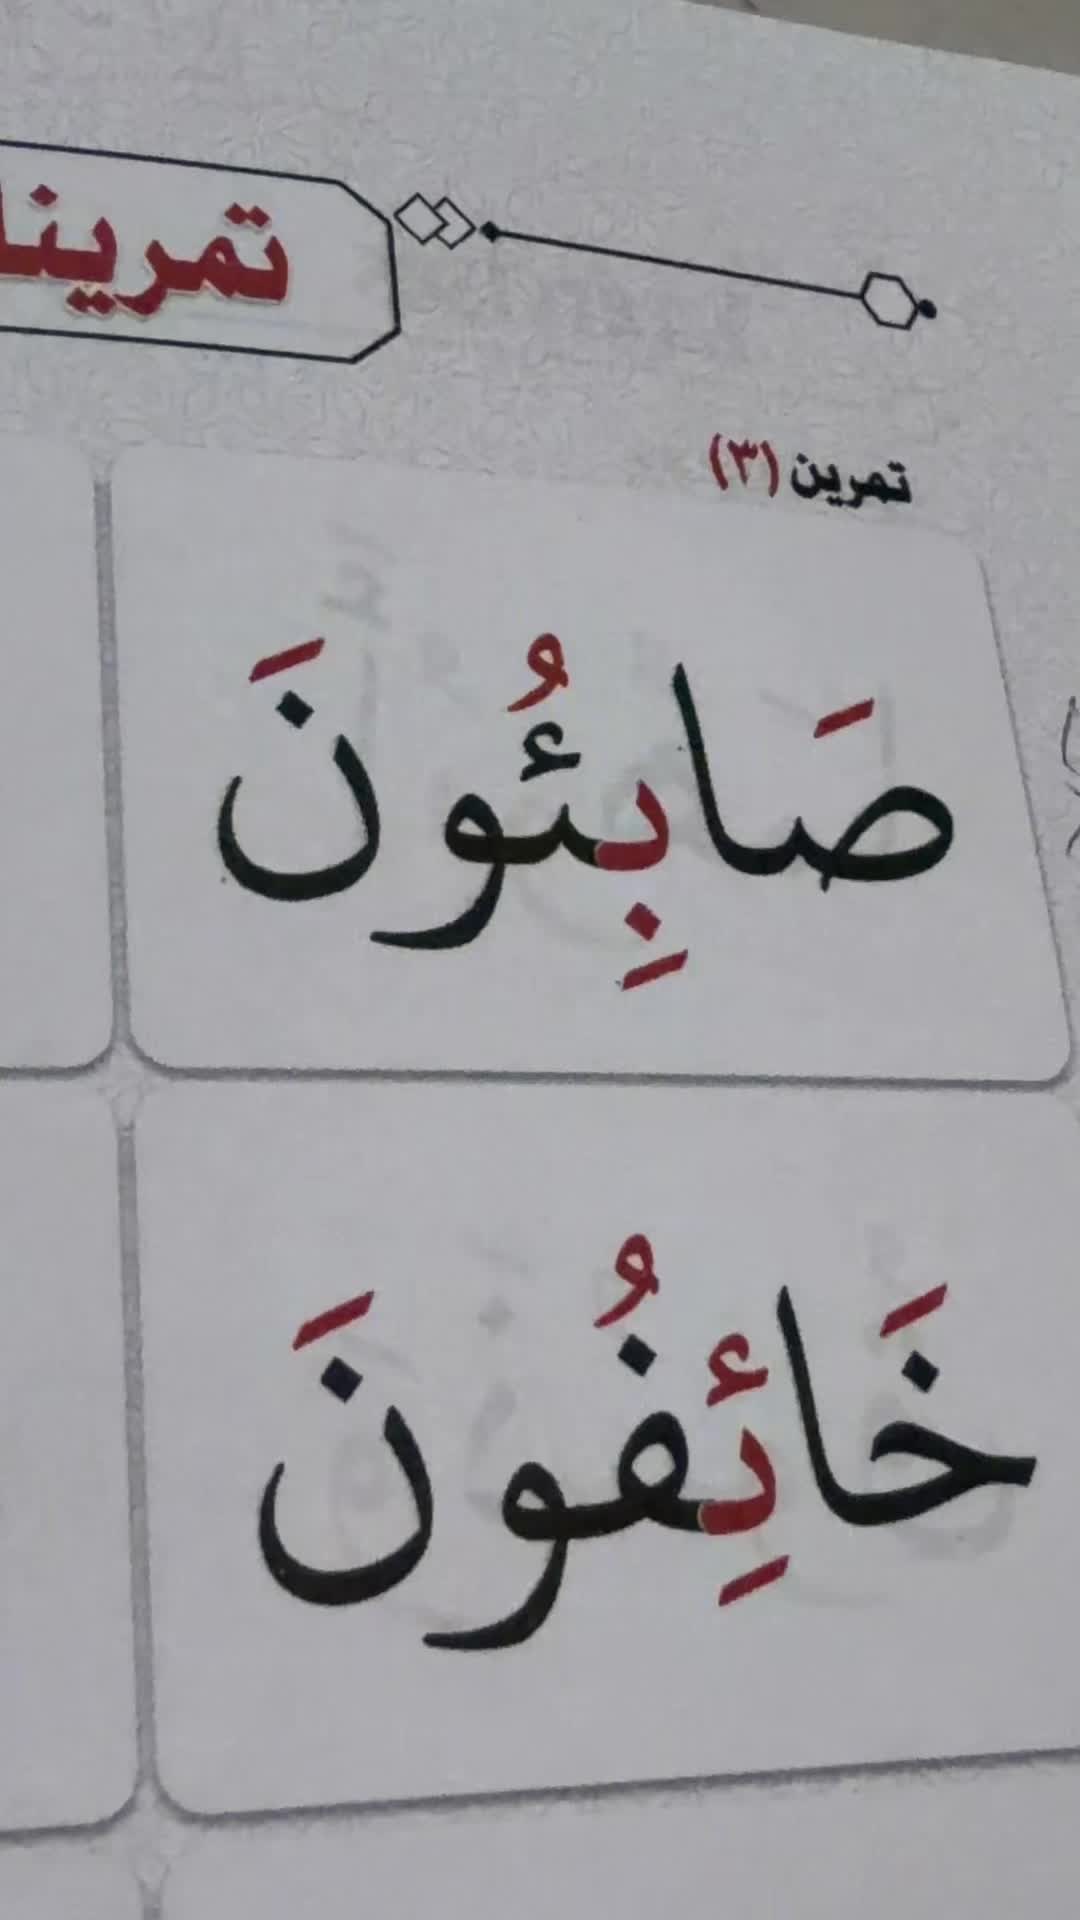 تمرين (٣)
صَابِئُونَ
خَائِفُونَ